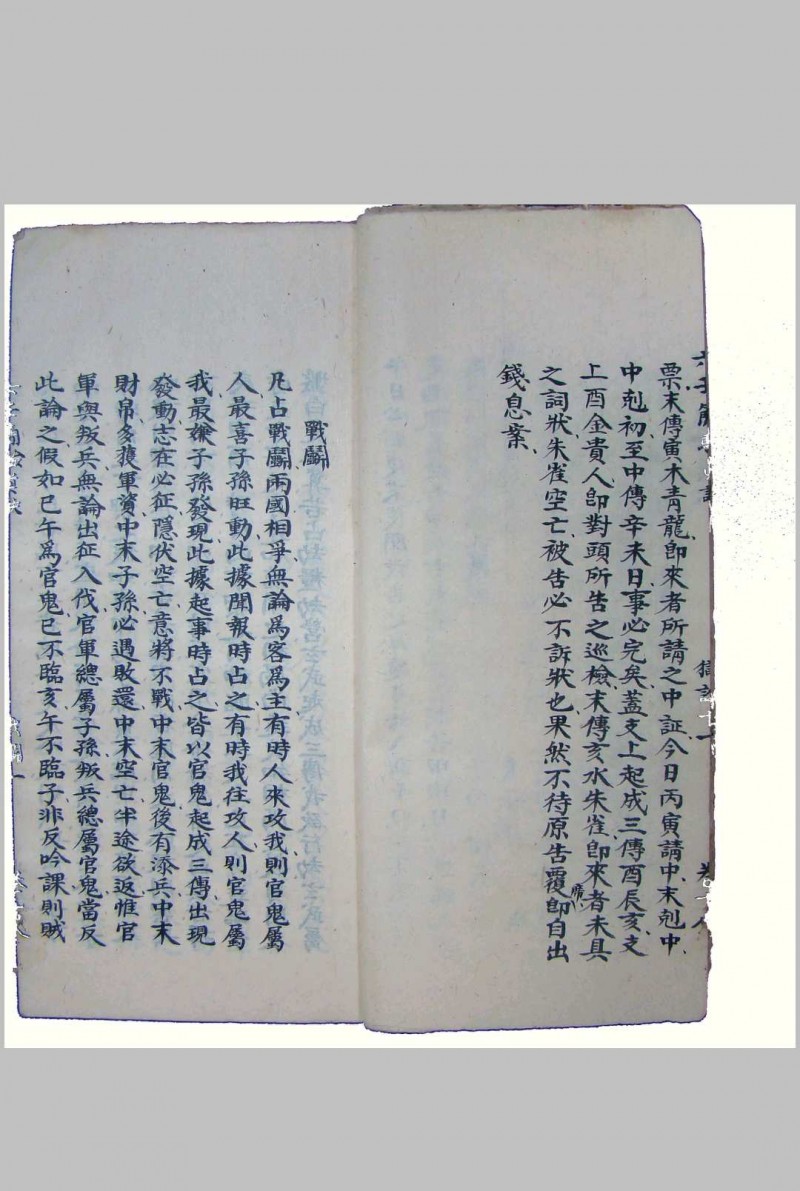 票末傳寅木青龍即來者所請之中証今日丙寅請中末剋中
中剋初至中傳辛未日事必完矣蓋支上起成三傳酉辰亥支
上酉金貴人即對頭所告之巡檢末傳亥水朱雀即來者未具
之詞狀朱雀空亡被告必不訴狀也果然不待原告覆即自出
錢息案
戰鬭
凡占戰鬭兩國相爭無論為客為主有時人來攻我則官鬼屬
人最喜子孫旺動此據聞報時占之有時我往攻人則官鬼屬
我最嫌子孫發現此據起事時占之皆以官鬼起成三傳出現
發動志在必征隱伏空亡意將不戰中末官鬼後有添兵中末
財帛多獲軍資中末子孫必遇敗還中末空亡半途欲返惟官
軍與叛兵無論出征入伐官軍總屬子孫叛兵總屬官鬼當反
此論之假如巳午為官鬼巳不臨亥午不臨子非反吟課則賊